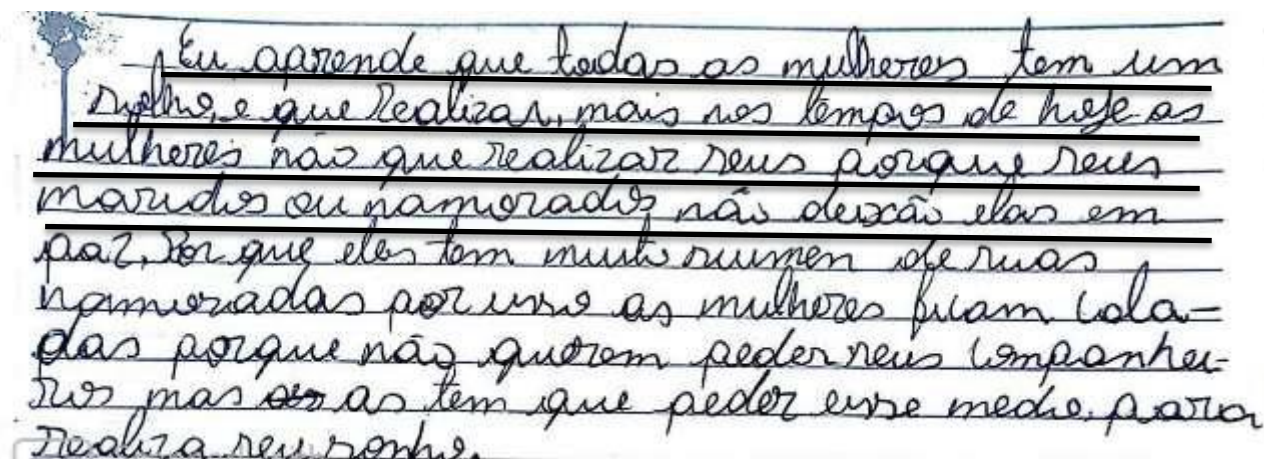 Eu aprende que todas as mulheres tem um
e que realizar, mais nos tempos de hoje as
mulheres não que realizar seus porque seus
maridos ou namorados não deixão elas em
paz. Por que eles tem muito siumen de suas
namoradas por isso as mulheres ficam cala-
das porque não querem peder seus companhei-
ros mas as tem que peder esse medio para
realiza seu sonho.